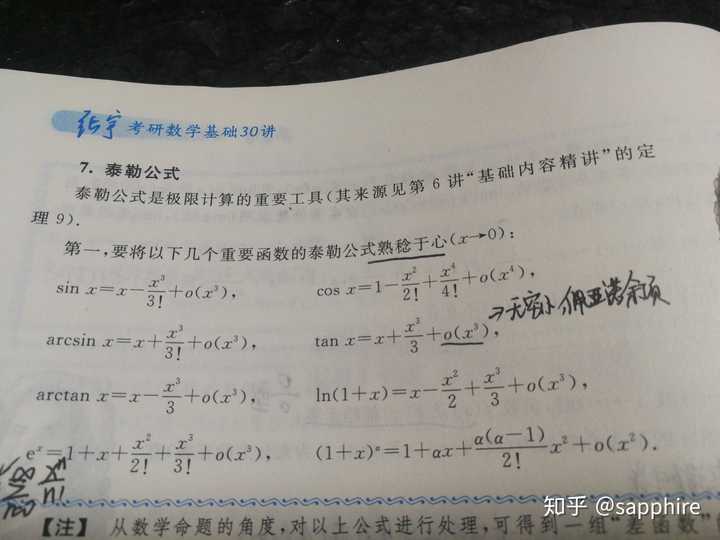 张宇 考研数学基础30讲
7. 泰勒公式
泰勒公式是极限计算的重要工具(其来源见第 6 讲“基础内容精讲”的定
理 9).
第一,要将以下几个重要函数的泰勒公式熟稔于心(x→0):
sin x=x-x³/3!+o(x³), cos x=1-x²/2!+x⁴/4!+o(x⁴),
→无穷小 佩亚诺余项
arcsin x=x+x³/3!+o(x³), tan x=x+x³/3+o(x³),
arctan x=x-x³/3+o(x³), ln(1+x)=x-x²/2+x³/3+o(x³),
eˣ=1+x+x²/2!+x³/3!+o(x³), (1+x)^α=1+αx+α(α-1)/2! x²+o(x²).
xⁿ/n!
【注】 从数学命题的角度,对以上公式进行处理,可得到一组“差函数”
知乎 @sapphire